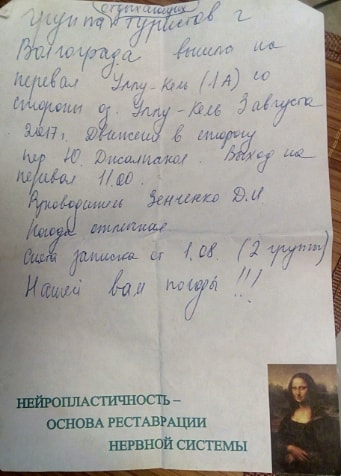 отдыхающих
группа туристов г
Волгограда вышла на
перевал Уллу-Кель (1А) со
стороны оз. Уллу-Кель 3 августа
2017г. Движемся в сторону
пер. Ю. Джалпакол. Выход на
перевал 11.00.
Руководитель Зенченко Д.И
Погода отличная.
Снята записка от 1.08. (2 группы)
Нашей вам погоды !!!
НЕЙРОПЛАСТИЧНОСТЬ –
ОСНОВА РЕСТАВРАЦИИ
НЕРВНОЙ СИСТЕМЫ